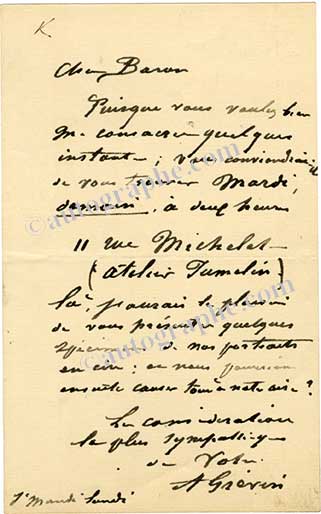 K.
Cher Baron
Puisque vous voulez bien
me consacrer quelques
instants; vous conviendrait-il
de vous trouver Mardi,
demain, à deux heures
11 rue Michelet
(atelier Jumelin)
là, j'aurais le plaisir
de vous présenter quelques
spécimens de nos portraits
en cire: et nous pourrions
ensuite causer tout à notre aise?
La considération
la plus sympathique
de votre
A Grévin
Mardi lundi
© autographe.com
© autographe.com
© autographe.com